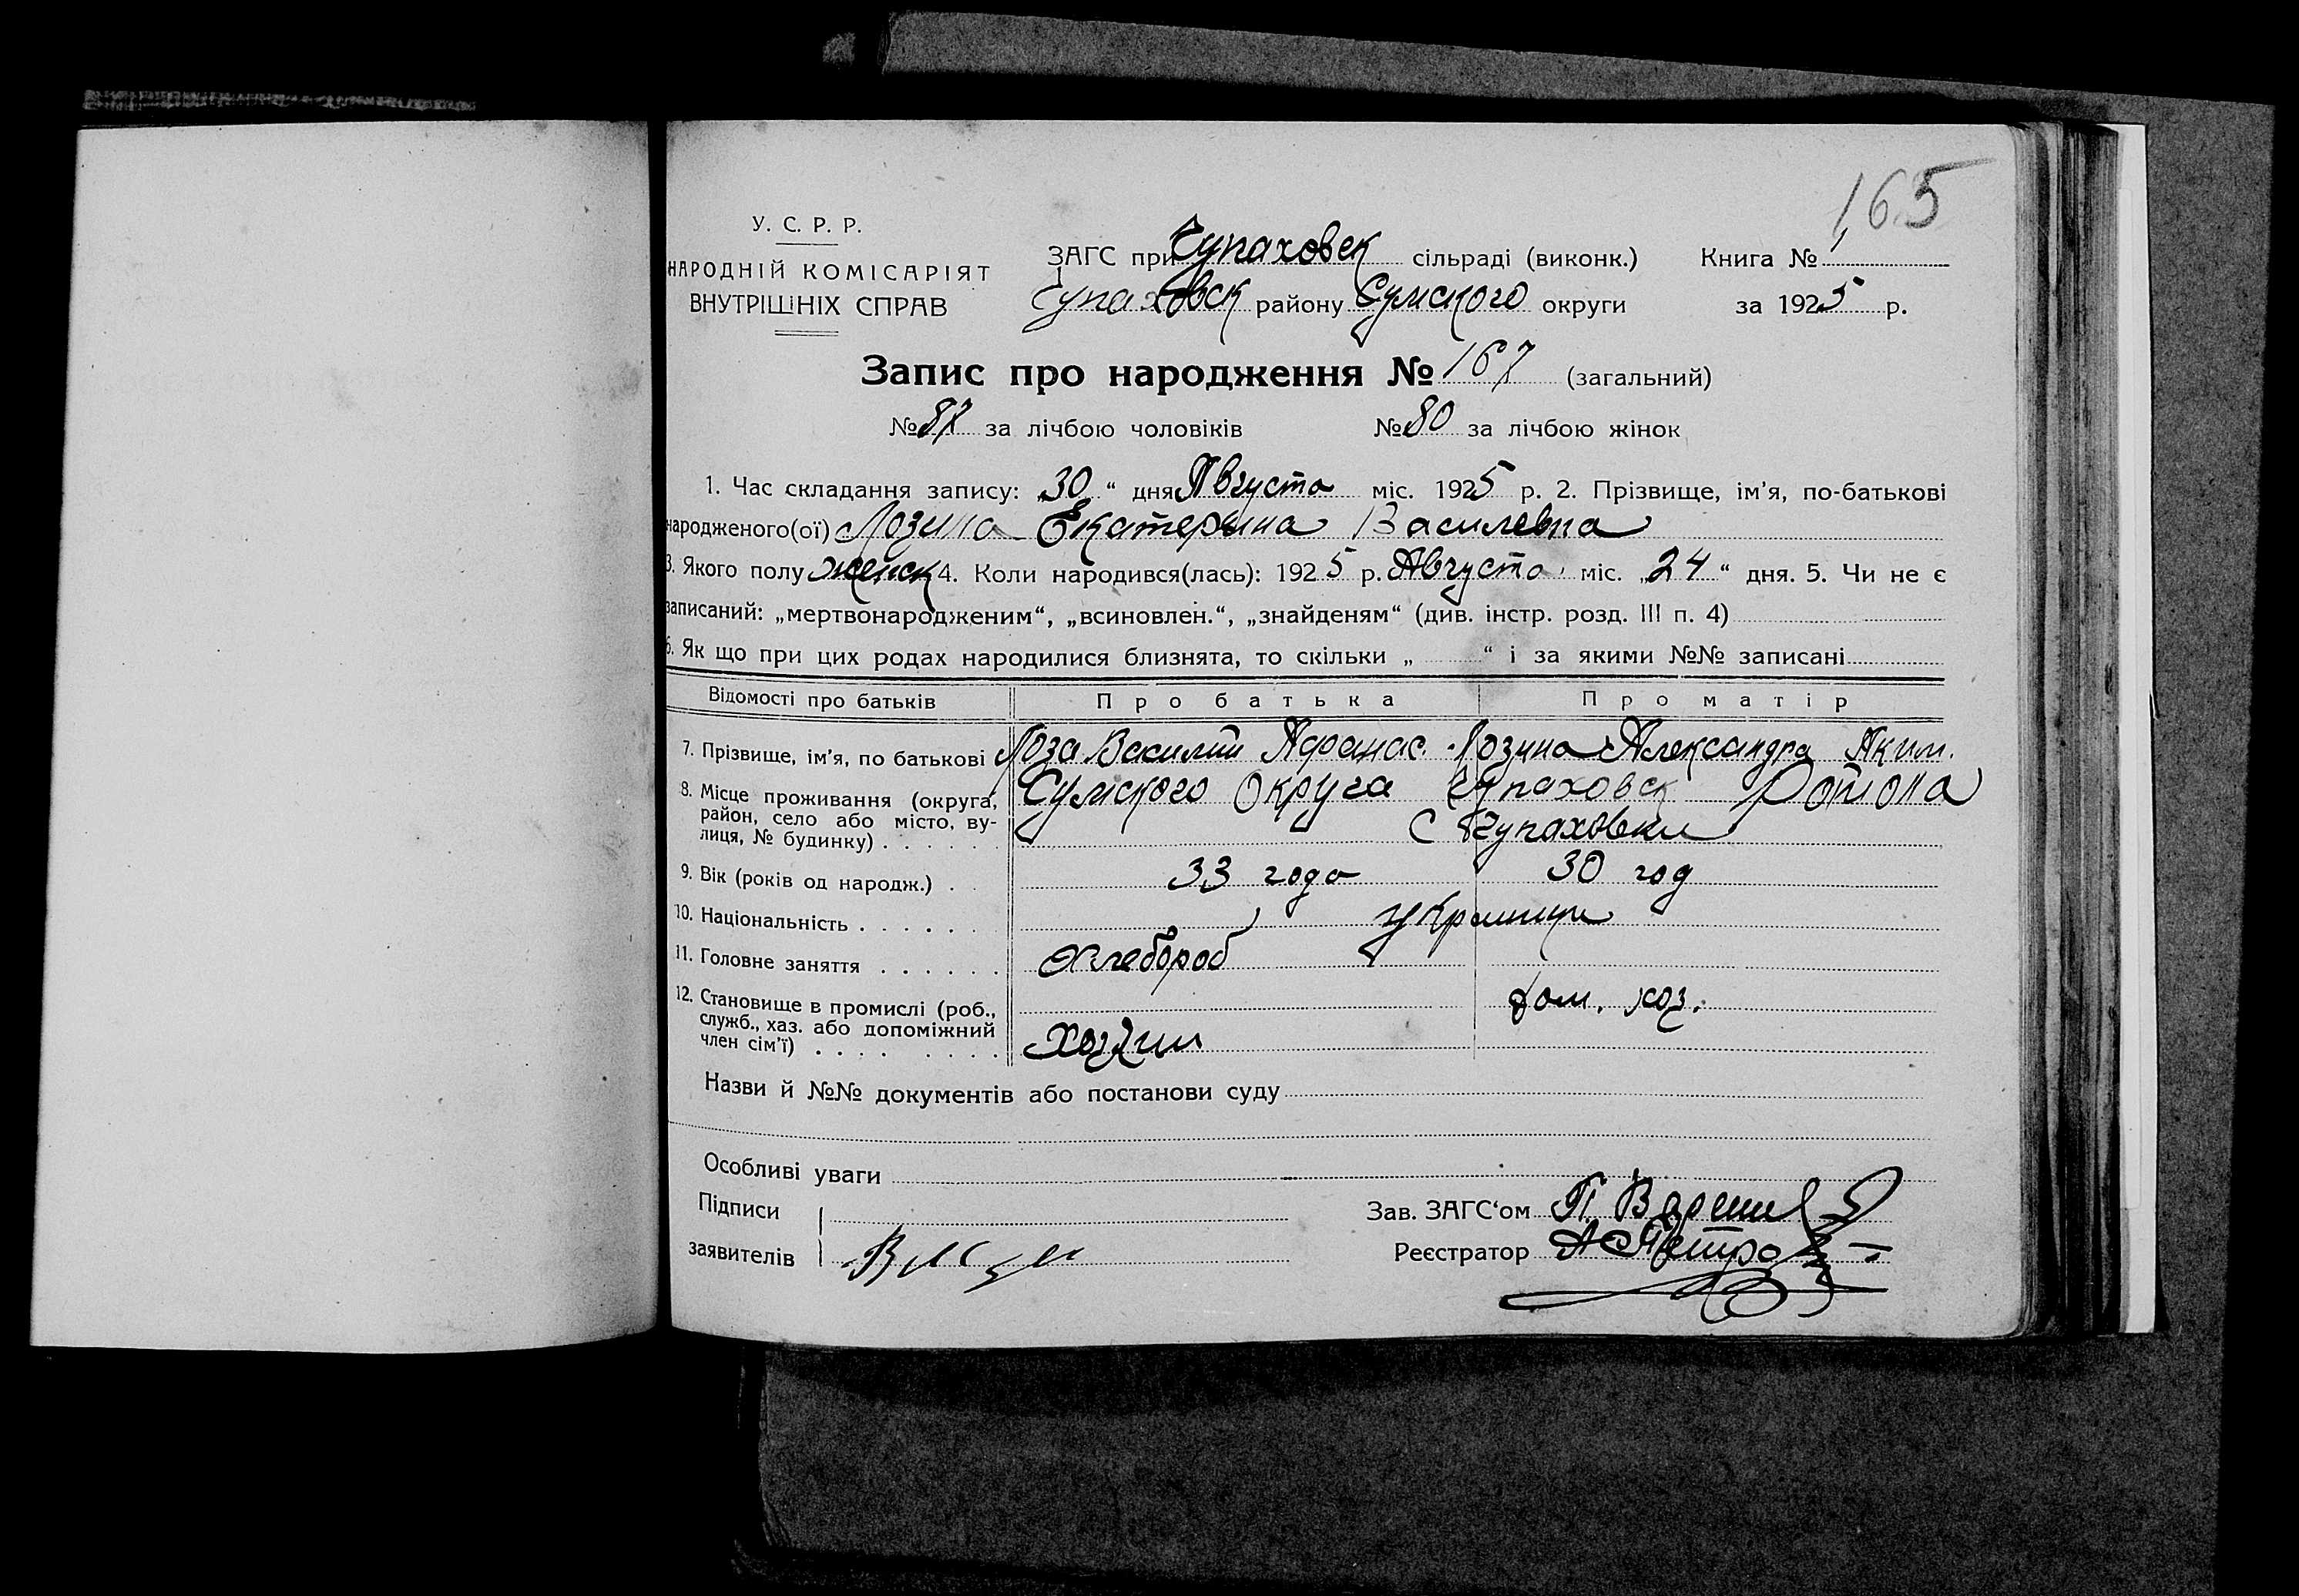 165
У. С. Р. Р.
НАРОДНІЙ КОМІСАРІЯТ
ВНУТРІШНІХ СПРАВ
ЗАГС при Чупаховск сільраді (виконк.) Книга № 1
Чупаховск району Сумского округи за 1925 р.
Запис про народження № 167 (загальний)
№ 87 за лічбою чоловіків № 80 за лічбою жінок
1. Час складання запису: „30“ дня Августа міс. 1925 р. 2. Прізвище, ім’я, по-батькові
народженого(ої) Лозина Екатерина Василевна
3. Якого полу женск 4. Коли народився(лась): 1925 р. Августа міс. „24“ дня. 5. Чи не є
записаний: „мертвонародженим“, „всиновлен.“, „знайденям“ (див. інстр. розд. III п. 4)
6. Як що при цих родах народилися близнята, то скільки „ “ і за якими №№ записані
Відомості про батьків Про батька Про матір
7. Прізвище, ім’я, по батькові Лоза Василий Афанас. Лозина Александра Аким.
8. Місце проживання (округа, район, село або місто, вулиця, № будинку) Сумского Округа Чупаховск Района
с Чупаховки
9. Вік (років од народж.) 33 года 30 год
10. Національність украинци
11. Головне заняття хлебороб
12. Становище в промислі (роб., служб., хаз. або допоміжний член сім’ї) хозяин дом. хоз.
Назви й №№ документів або постанови суду
Особливі уваги
Підписи
заявителів
Зав. ЗАГС‘ом П
Реєстратор А